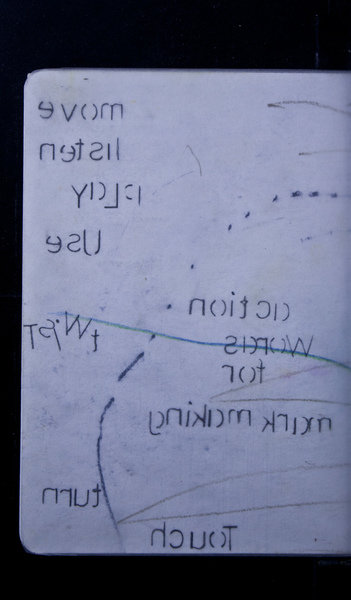 move
listen
play
Use
action
twist
words
for
mark making
turn
Touch